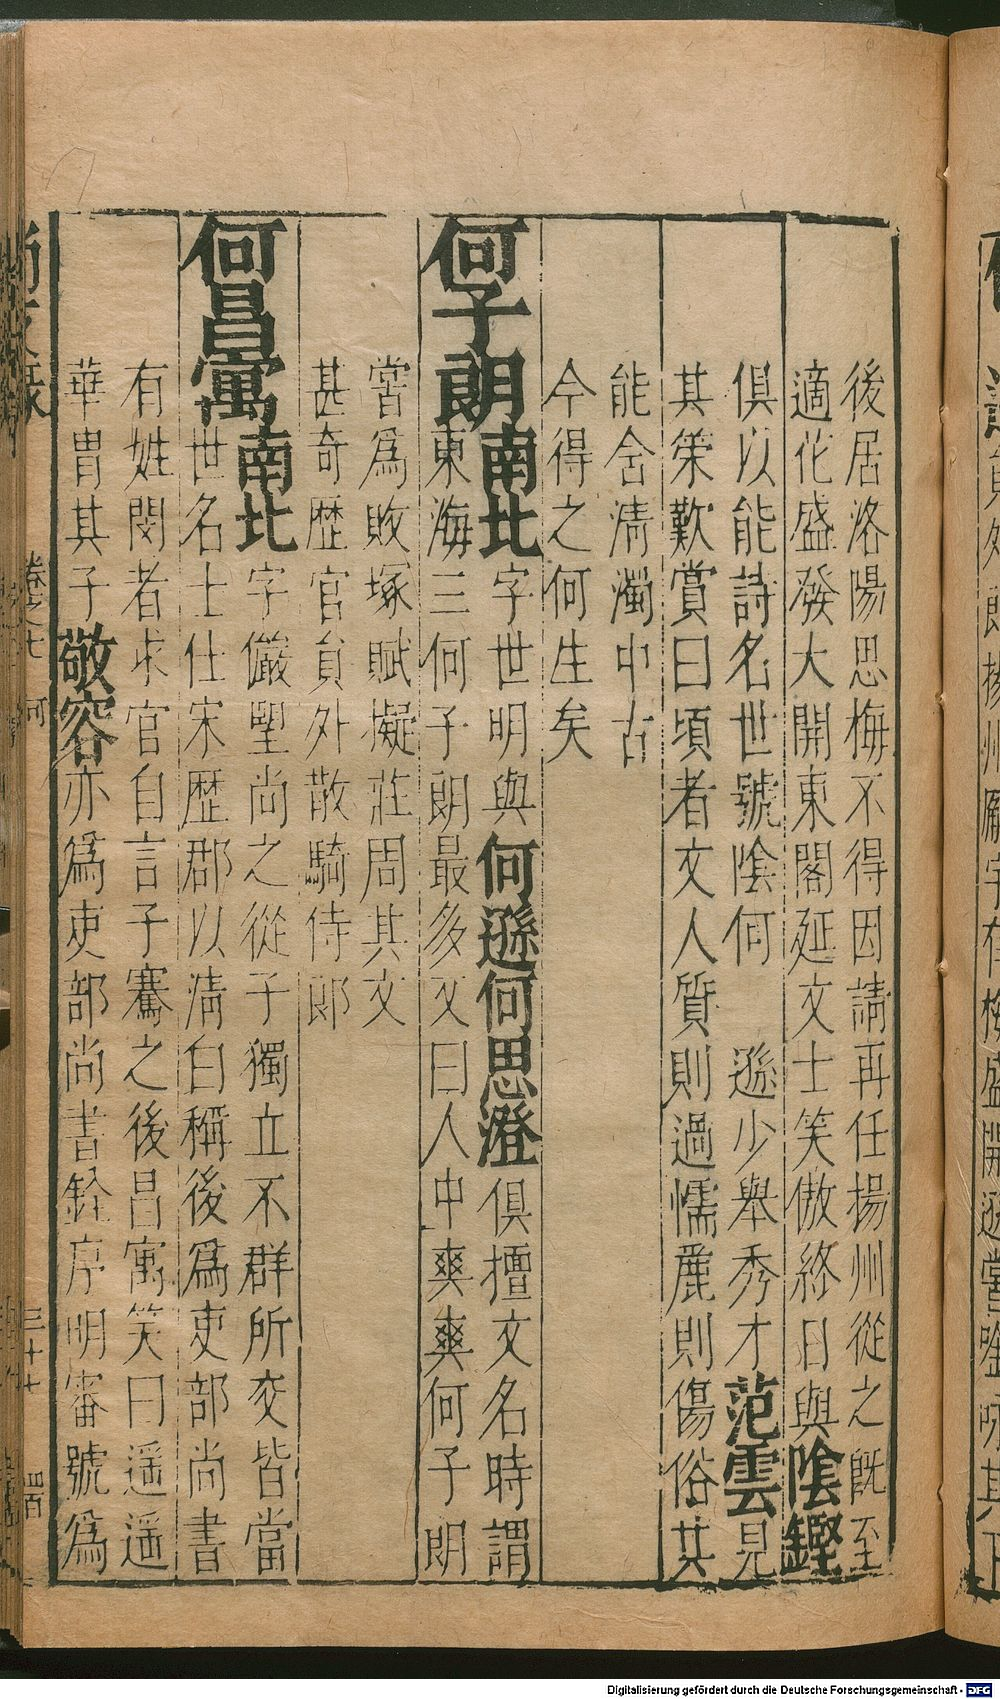 後居洛陽思梅不得因請再任揚州從之既至
適花盛發大開東閣延文士笑傲終日與陰鏗
俱以能詩名世號陰何　遜少舉秀才范雲見
其策歎賞曰頃者文人質則過懦麗則傷俗其
能含清濁中古
今得之何生矣
何子朗南北字世明與何遜何思澄俱擅文名時謂
東海三何子朗最多文曰人中爽爽何子朗
嘗為敗塚賦擬莊周其文
甚奇歷官員外散騎侍郎
何昌㝢南北字儼望尚之從子獨立不群所交皆當
世名士仕宋歷郡以清白稱後爲吏部尚書
有姓閔者求官自言子騫之後昌寓笑曰遥遥
華胄其子敬容亦爲吏部尚書銓序明審號爲
卷之七　何
三十七
Digitalisierung gefördert durch die Deutsche Forschungsgemeinschaft - DFG